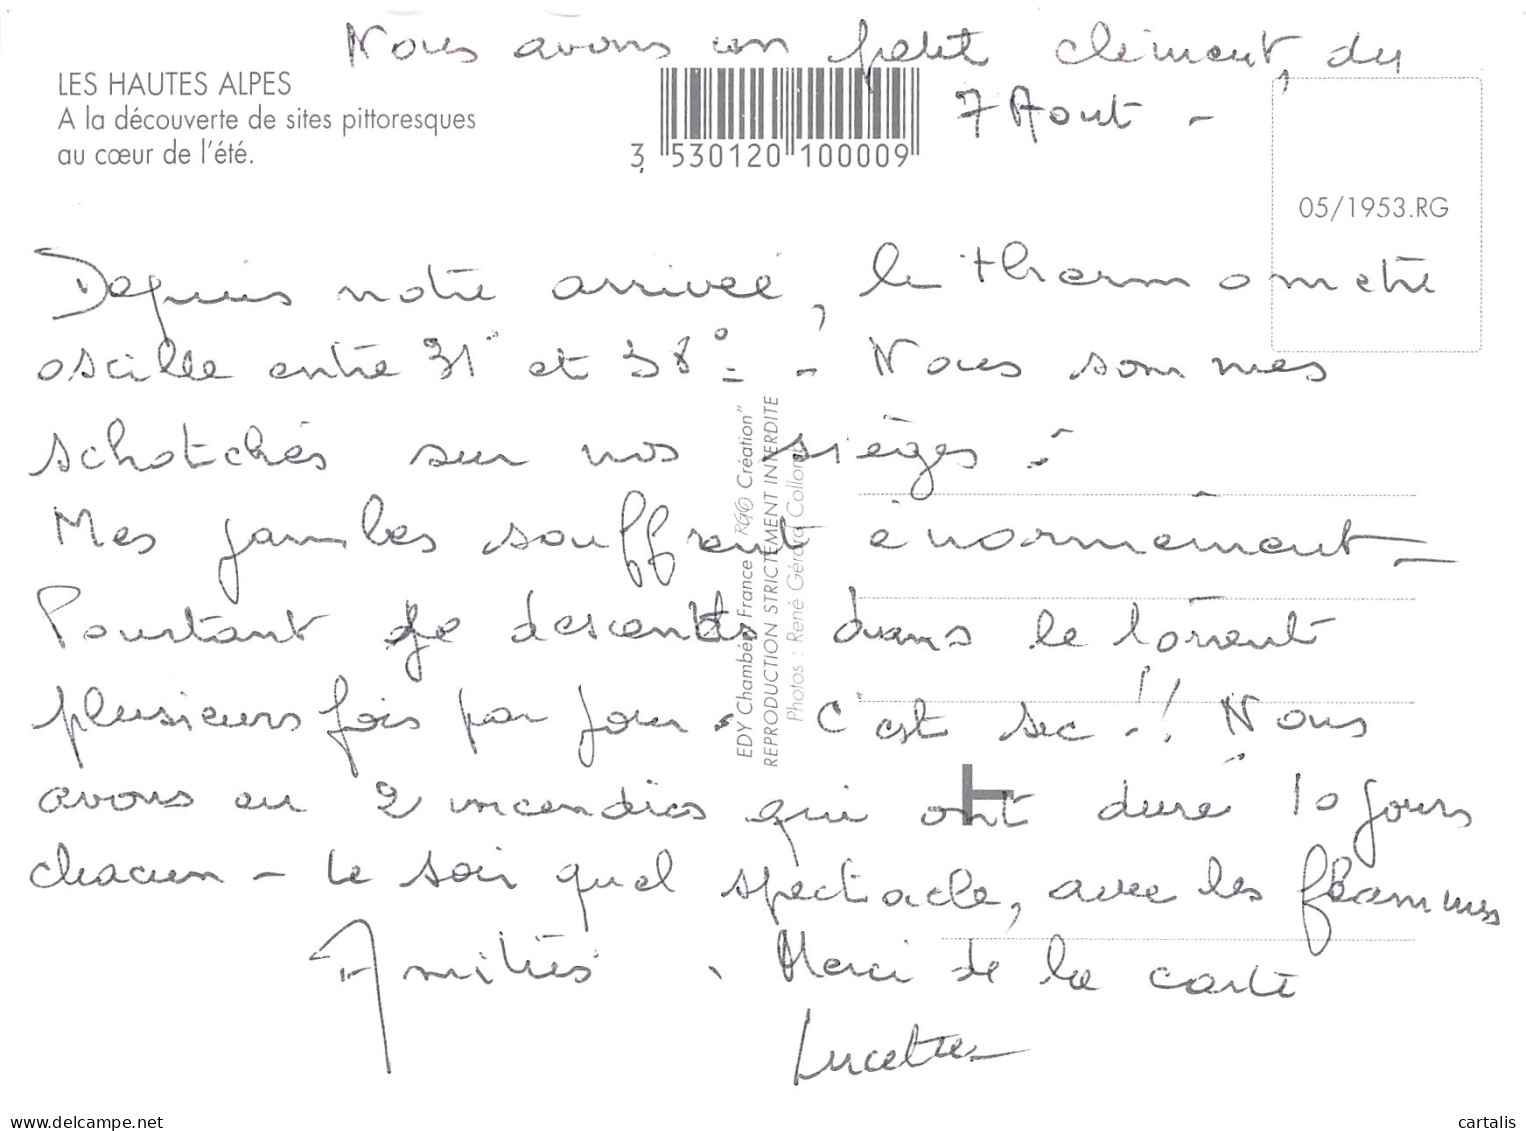 Nous avons un petit clément, du
7 Aout -
LES HAUTES ALPES
A la découverte de sites pittoresques
au cœur de l'été.
3 530120 100009
05/1953.RG
Depuis notre arrivée, le thermometre
oscille entre 31° et 38° - Nous sommes
schotchés sur nos sièges :
Mes jambes souffrent énormément -
Pourtant je descends dans le torrent
plusieurs fois par jour. C'est sec !! Nous
avons eu 2 incendies qui ont duré 10 jours
chacun - Le soir quel spectacle, avec les flammes
Amitiés. Merci de la carte
Lucette
EDY Chambéry France RGO Création"
REPRODUCTION STRICTEMENT INTERDITE
Photos : René Gérard Collomb
delcampe.net
cartalis